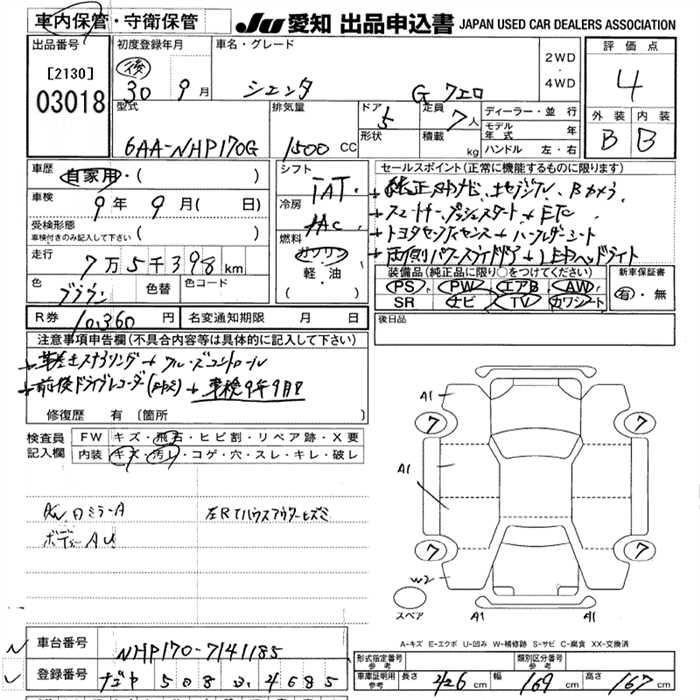 車内保管・守衛保管
JU 愛知 出品申込書 JAPAN USED CAR DEALERS ASSOCIATION
出品番号 [2130] 03018
初度登録年月 後 30年 9月
車名・グレード シエンタ G クエロ
2WD・4WD
評価点 4
外装 B 内装 B
型式 6AA-NHP170G
排気量 1500 CC
ドア 5
形状
定員 7人
積載 kg
ディーラー・並行
モデル年式 年
ハンドル 左・右
車歴 自家用・( )
車検 9年 9月( 日)
受検形態 車検付きのみ記入して下さい ( )
走行 7万5千398km
色 ブラウン 色替 色コード
R券 10,360円 名変通知期限 月 日
シフト IAT
冷房 AAC
燃料 ガソリン・軽・油
セールスポイント(正常に機能するものに限ります)
純正メモリナビ、地デジTV、Bカメラ
スマートキー、プッシュスタート、ETC
トヨタセーフティセンス、ハーフレザーシート
両側パワースライドドア、LEDヘッドライト
装備品(純正品に限り○をつけてください)
PS・PW・エアB・AW
SR・ナビ・TV・カワシート
新車保証書 有・無
後日品
注意事項申告欄(不具合内容等は具体的に記入して下さい)
革巻きステアリング、クルーズコントロール
前後ドライブレコーダー 車検9年9月
修復歴 有 [箇所 ]
検査員記入欄
FW キズ・飛石・ヒビ割・リペア跡・X要
内装 キズ・汚レ・コゲ・穴・スレ・キレ・破レ
AW、ロミラーA 左RTハウスアウターヒズミ
ボディーAU
A1
7 7
A1
7 7
W2
スペア
A1 A1
A-キズ E-エクボ U-凹み W-補修跡 S-サビ C-腐食 XX-交換済
車台番号 NHP170-7141185
登録番号 508 4685
形式指定番号 参考 類別区分番号 参考
車庫証明用 参考 長さ 426cm 幅 169cm 高さ 167cm